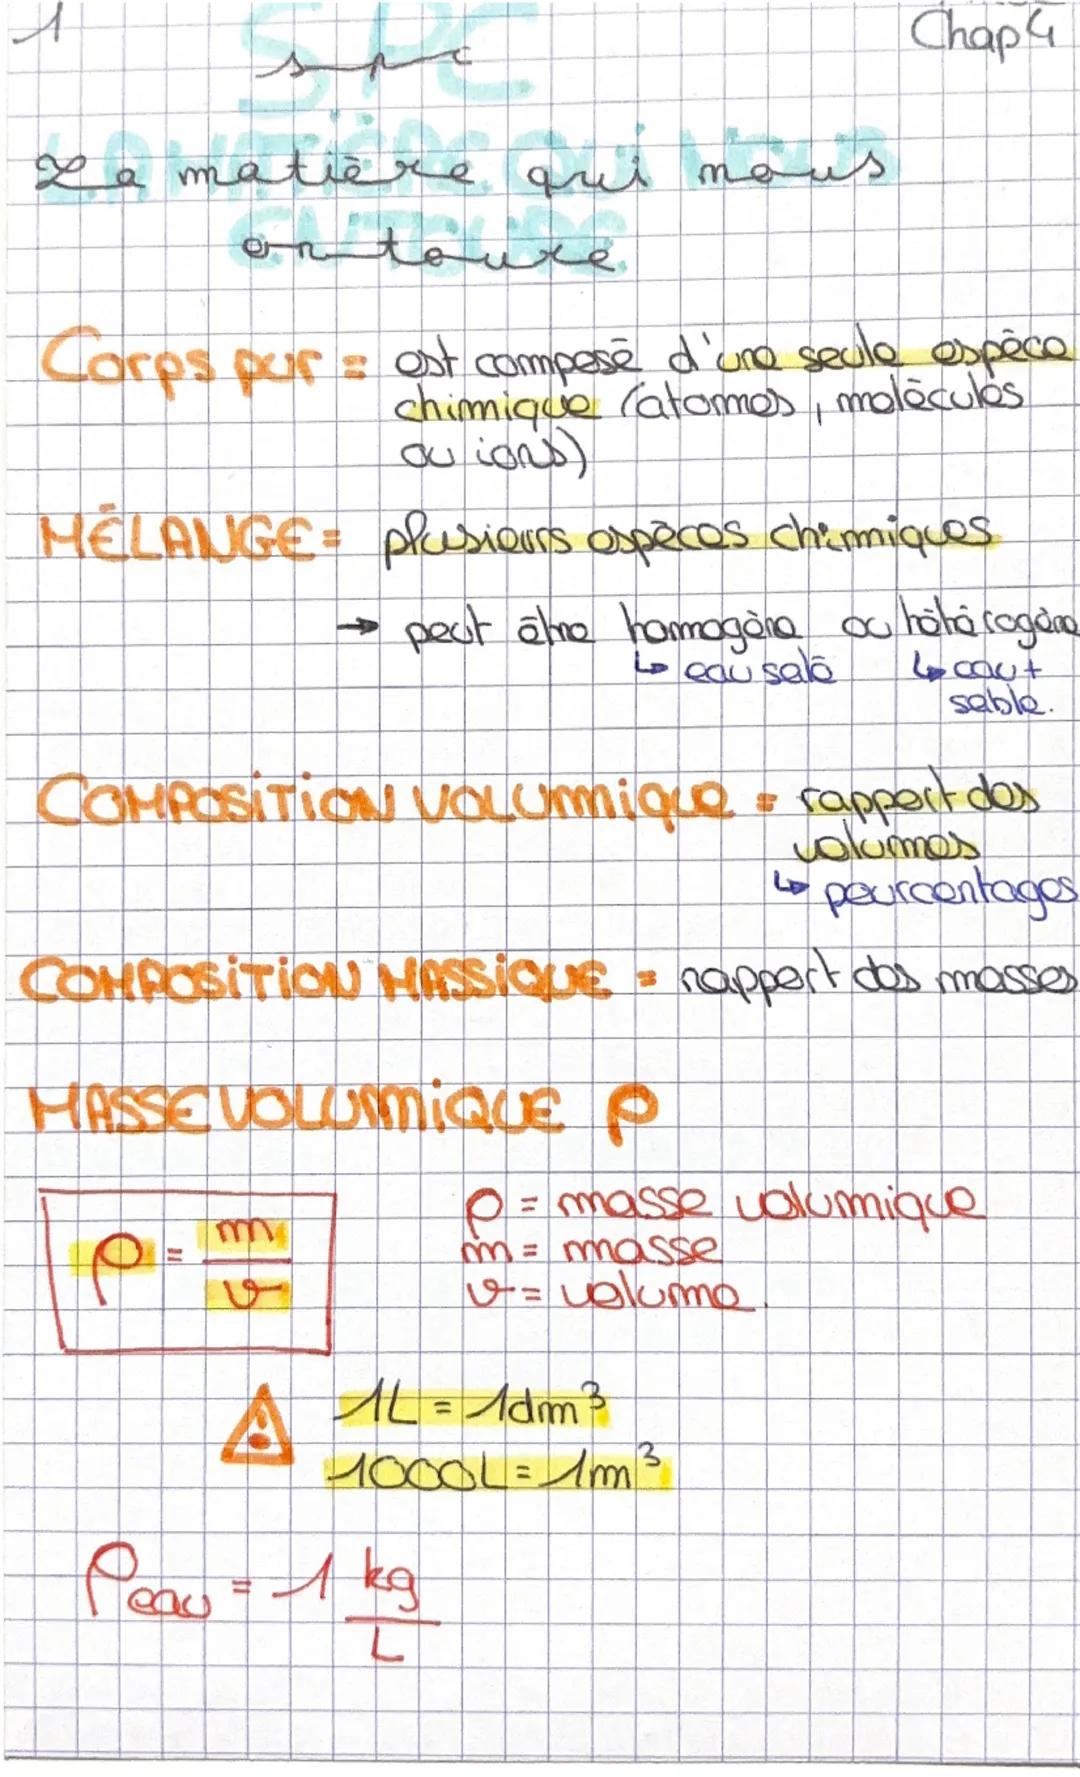 1
Chap 4
SPC
spc
LA MATIÈRE QUI NOUS
La matière qui nous
ENTOURE
entoure
Corps pur = est composé d'une seule espèce
chimique (atomes, molécules
ou ions)
MÉLANGE = plusieurs espèces chimiques
→ peut être homogène ou hétérogène
↳ eau salé
↳ eau +
sable.
COMPOSITION VOLUMIQUE = rapport des
volumes
↳ pourcentages
COMPOSITION MASSIQUE = rapport des masses
MASSE VOLUMIQUE ρ
ρ = m/v
ρ = masse volumique
m = masse
v = volume.
1L = 1dm³
1000L = 1m³
ρeau = 1 kg/L